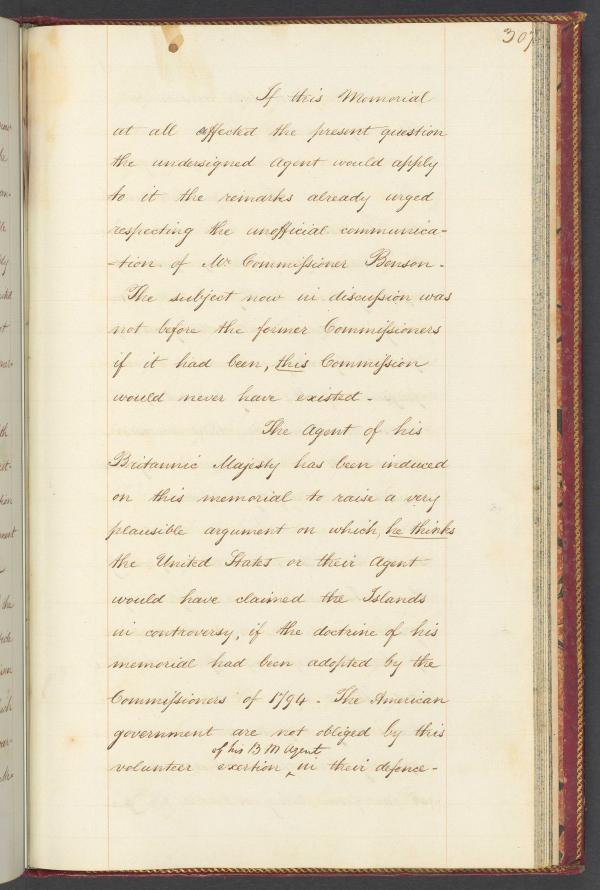 307
If this Memorial
at all affected the present question
the undersigned Agent would apply
to it the remarks already urged
respecting the unofficial communica-
-tion of Mr Commissioner Benson.
The subject now in discussion was
not before the former Commissioners
if it had been, this Commission
would never have existed.
The Agent of his
Britannic Majesty has been induced
on this memorial to raise a very
plausible argument on which, he thinks
the United States or their Agent
would have claimed the Islands
in controversy, if the doctrine of his
memorial had been adopted by the
Commissioners of 1794. The American
government are not obliged by this
of his B M Agent
volunteer exertion ‸ in their defence-